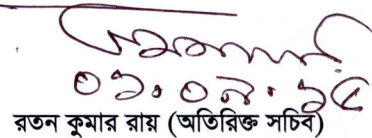 ০১.০৯.১৫
রতন কুমার রায় (অতিরিক্ত সচিব)